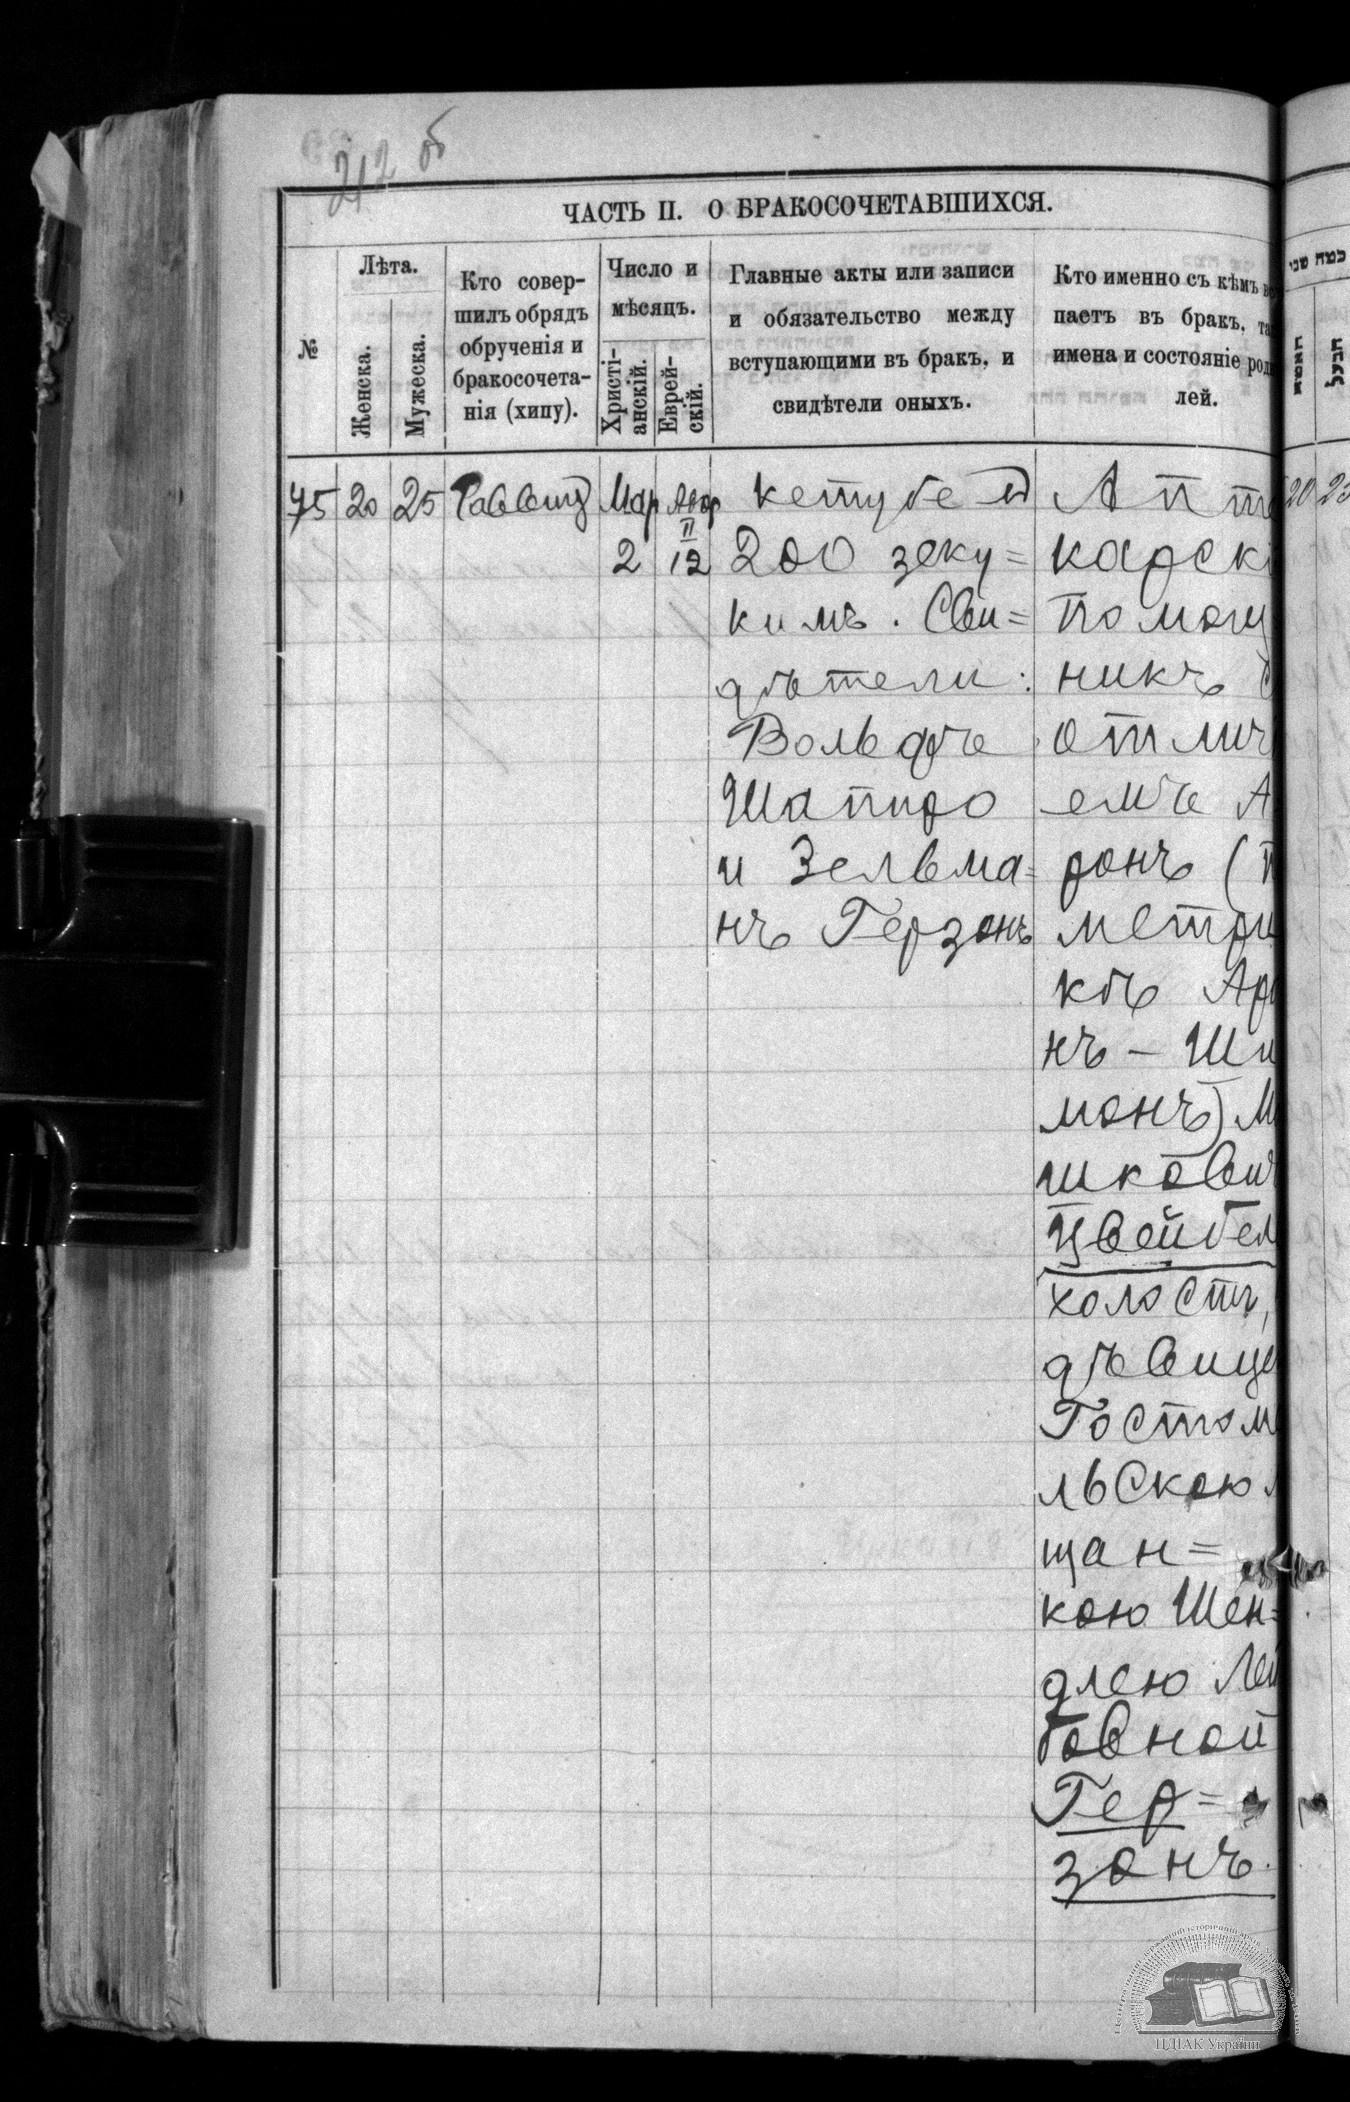 212 об
ЧАСТЬ II. О БРАКОСОЧЕТАВШИХСЯ.
№
Лѣта.
Женска.
Мужеска.
Кто совер-
шилъ обрядъ
обрученія и
бракосочета-
нія (хипу).
Число и
мѣсяцъ.
Христі-
анскій.
Еврей-
скій.
Главные акты или записи
и обязательство между
вступающими въ бракъ, и
свидѣтели оныхъ.
Кто именно съ кѣмъ в
паетъ въ бракъ, та
имена и состояніе род
лей.
75 20 25 Раввинъ
Мар
2
Адар
II
12
кетубе въ
200 зеку=
кимъ. Сви=
дѣтели:
Вольфъ
Шапиро
и Зельма=
нъ Герзонъ
Апте
карскі
помощ
никъ с
отличі
емъ А
ронъ (п
метри
кѣ Аро
нъ - Ши
монъ) М
шкович
Цвейбел
холостъ,
дѣвице
Гостом
льскою м
щан=
кою Шен=
длею Лей
бовной
Гер=
зонъ.
20 23
ЦДІАК України